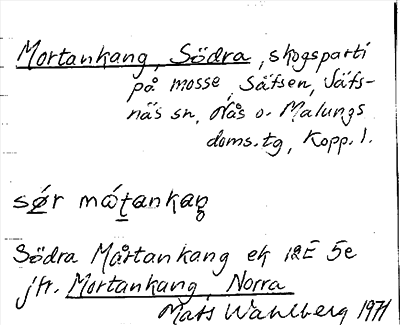 Mortankang, Södra, skogsparti
på mosse, Säfsen, Säfs-
näs sn, Nås o. Malungs
doms.tg, Kopp. l.
sø̲r má̲t̲ankaŋ
Södra Mårtankang ek 12E 5e
jfr. Mortankang, Norra
Mats Wahlberg 1971